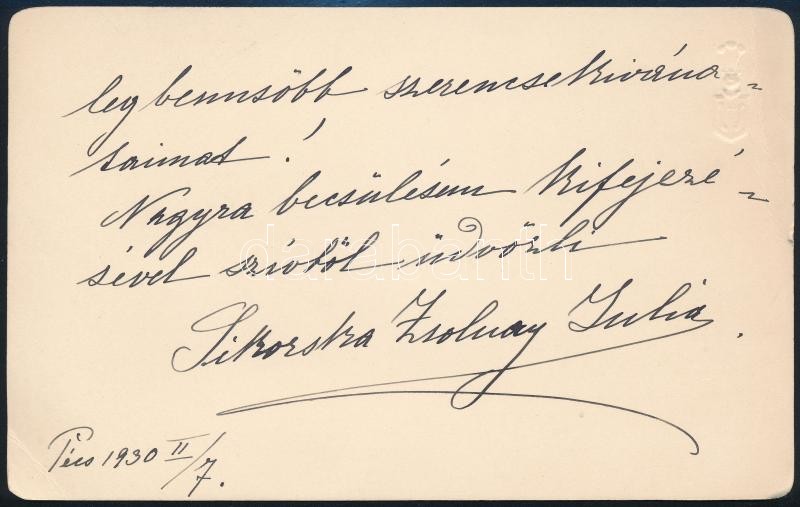 legbennsőbb szerencsekivána-
taimat!
Nagyra becsülésem kifejezé-
sével szívből üdvözli
Sikorska Zsolnay Julia.
Pécs 1930 II/7.
darabanth